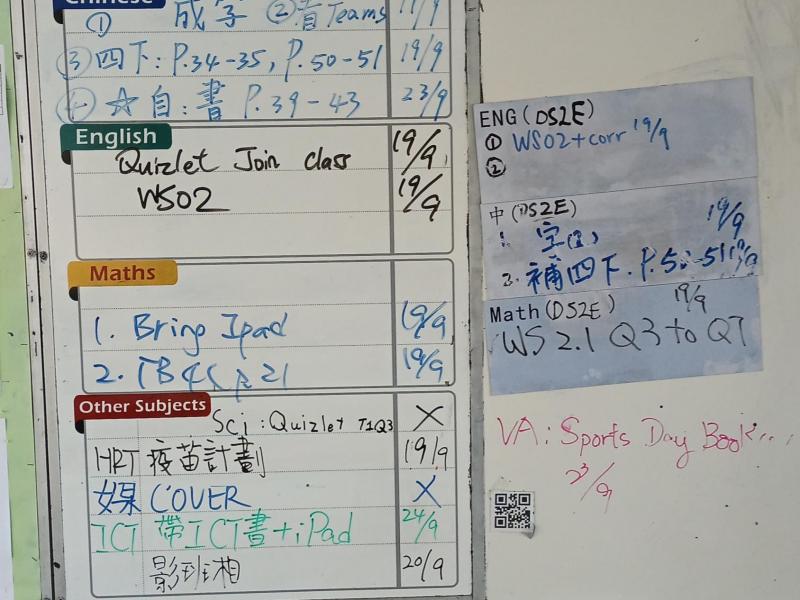 Chinese
① 成字 ②看Teams 19/9
③四下: P.34-35, P.50-51 19/9
④☆自: 書 P.39-43 23/9
English
Quizlet Join class 19/9
WS02 19/9
Maths
1. Bring Ipad 19/9
2. TB 4S p 21 19/9
Other Subjects
Sci: Quizlet T1Q3 X
HRT 疫苗計劃 19/9
COVER X
ICT 帶ICT書+iPad 24/9
影班相 20/9
ENG (DS2E)
① WS02+corr 19/9
②
中(DS2E) 19/9
1. 字
2. 補四下. P.50-51 19/9
Math(DS2E) 19/9
WS 2.1 Q3 to Q7
VA: Sports Day Book...
23/9